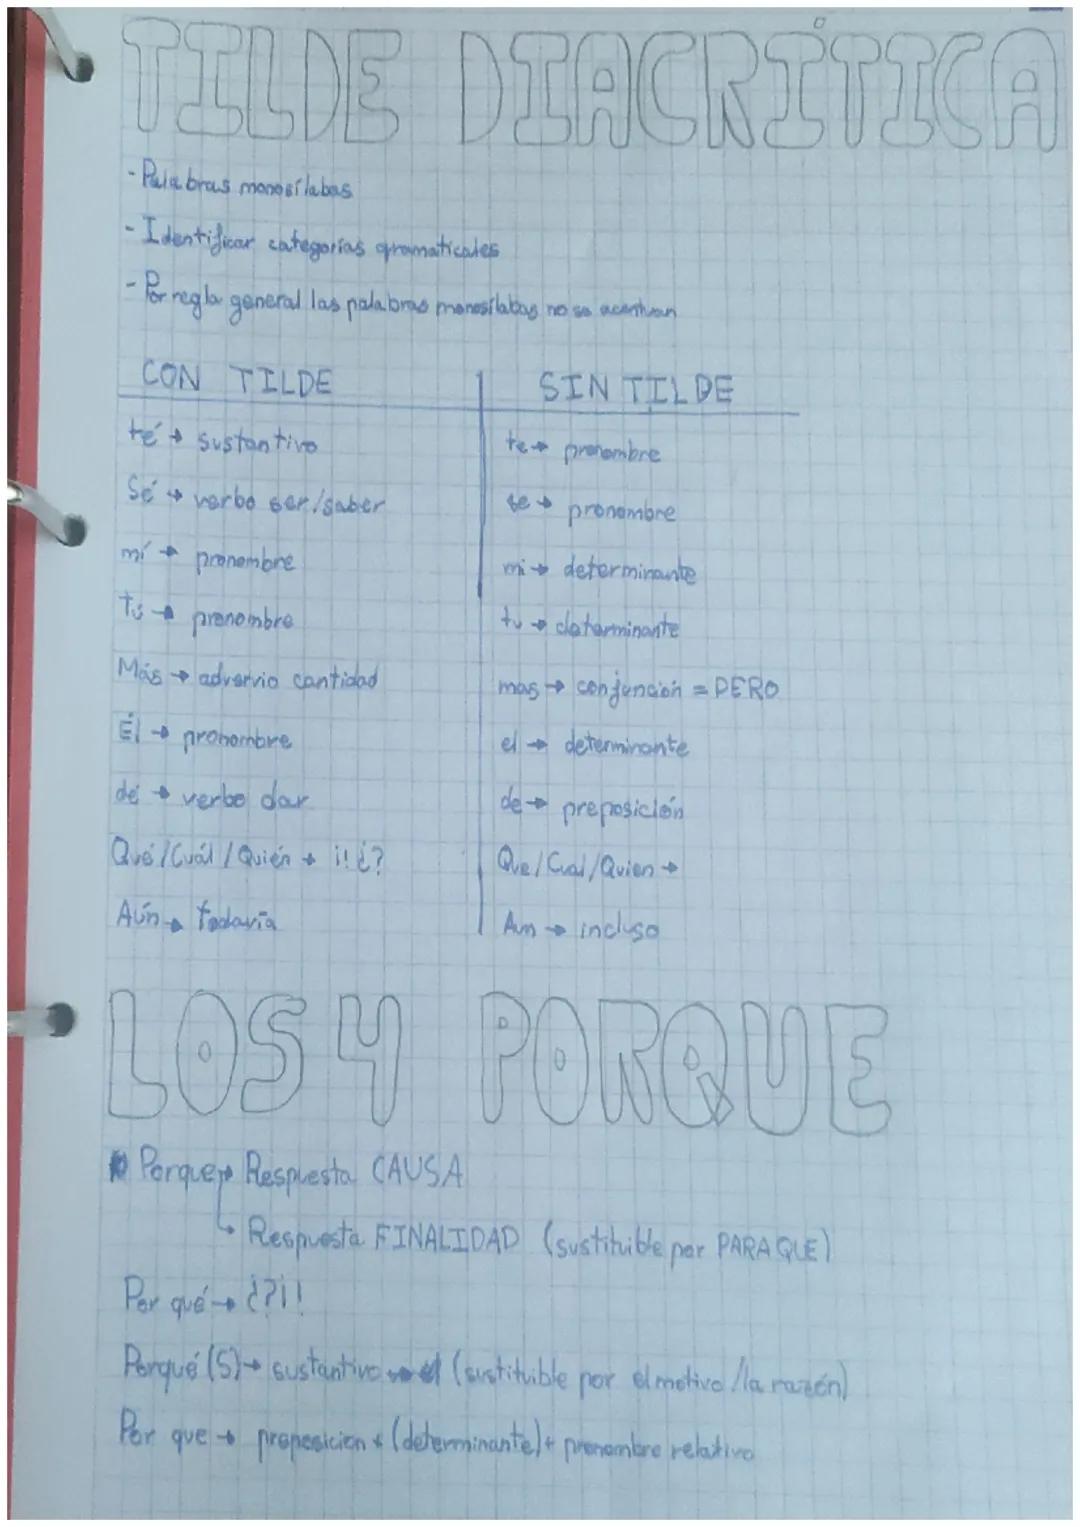 TILDE DIACRÍTICA
- Palabras monosílabas
- Identificar categorías gramaticales
- Por regla general las palabras monosílabas no se acentuan
CON TILDE SIN TILDE
té → sustantivo te → pronombre
Sé → verbo ser/saber se → pronombre
mí → pronombre mi → determinante
Tú → pronombre tu → determinante
Más → advervio cantidad mas → conjunción = PERO
Él → pronombre el → determinante
dé → verbo dar de → preposición
Qué/Cuál/Quién → ¡! ¿? Que/Cual/Quien →
Aún → Todavía Aun → incluso
LOS 4 PORQUE
Porque → Respuesta CAUSA
↳ Respuesta FINALIDAD (sustituible por PARA QUE)
Por qué → ¿?¡!
Porqué (S) → sustantivo (sustituible por el motivo/la razón)
Por que → preposicion + (determinante) + pronombre relativo